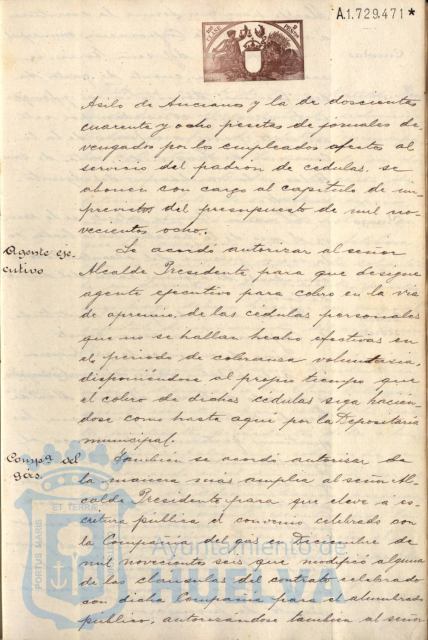 A.1.729.471*
Asilo de Ancianos y la de doscientas
cuarenta y ocho pesetas de jornales de-
vengados por los empleados afectos al
servicio del padrón de cédulas, se
abonen con cargo al capítulo de im-
previstos del presupuesto de mil no-
vecientos ocho.
Agente eje-
cutivo
Se acordó autorizar al señor
Alcalde Presidente para que designe
agente ejecutivo para cobro en la vía
de apremio, de las cédulas personales
que no se hallan hecho efectivas en
el periodo de cobranza voluntaria,
disponiéndose al propio tiempo que
el cobro de dichas cédulas siga hacién-
dose como hasta aquí por la Depositaría
municipal.
Compª del
gás
También se acordó autorizar de
la manera más amplia al señor Al-
calde Presidente para que eleve á es-
critura pública el convenio celebrado con
la Compañía del gás en Diciembre de
mil novecientos seis que modificó alguna
de las cláusulas del contrato celebrado
con dicha Compañía para el alumbrado
público, autorizándose también al señor
PORTUS MARIS ET TERRÆ
Ayuntamiento de
HUELVA